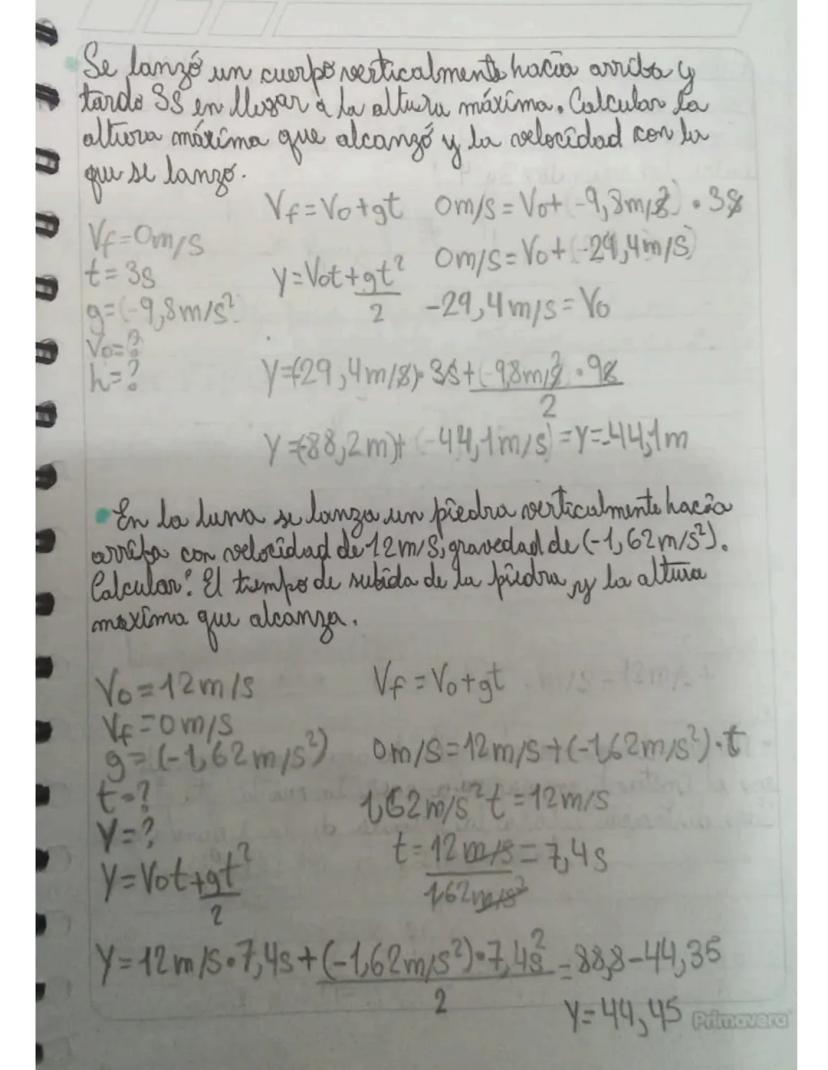 Se lanzó un cuerpo verticalmente hacia arriba y
tardo 3S en llegar a la altura máxima. Calcular la
altura máxima que alcanzó y la velocidad con la
que se lanzo.
Vf=Vo+gt 0m/s=Vo+(-9,8m/s²)•3s
Vf=0m/s
t=3s
g=(-9,8m/s²)
Vo=?
h=?
0m/s=Vo+(-29,4m/s)
y=Vot+gt²/2
-29,4m/s=Vo
Y=(-29,4m/s)•3s+(-9,8m/s²•9s/2
Y=(-88,2m)+(-44,1m/s)=Y=-44,1m
En la luna se lanza un piedra verticalmente hacia
arriba con velocidad de 12m/s, gravedad de (-1,62m/s²).
Calcular: El tiempo de subida de la piedra y la altura
maxima que alcanza.
Vo=12m/s
Vf=0m/s
g=(-1,62m/s²)
t=?
Y=?
Y=Vot+gt²/2
Vf=Vo+gt
0m/s=12m/s+(-1,62m/s²)•t
1,62m/s²t=12m/s
t=12m/s/1,62m/s²=7,4s
Y=12m/s•7,4s+(-1,62m/s²)•7,4s²/2=88,8-44,35
Y=44,45
Primavera